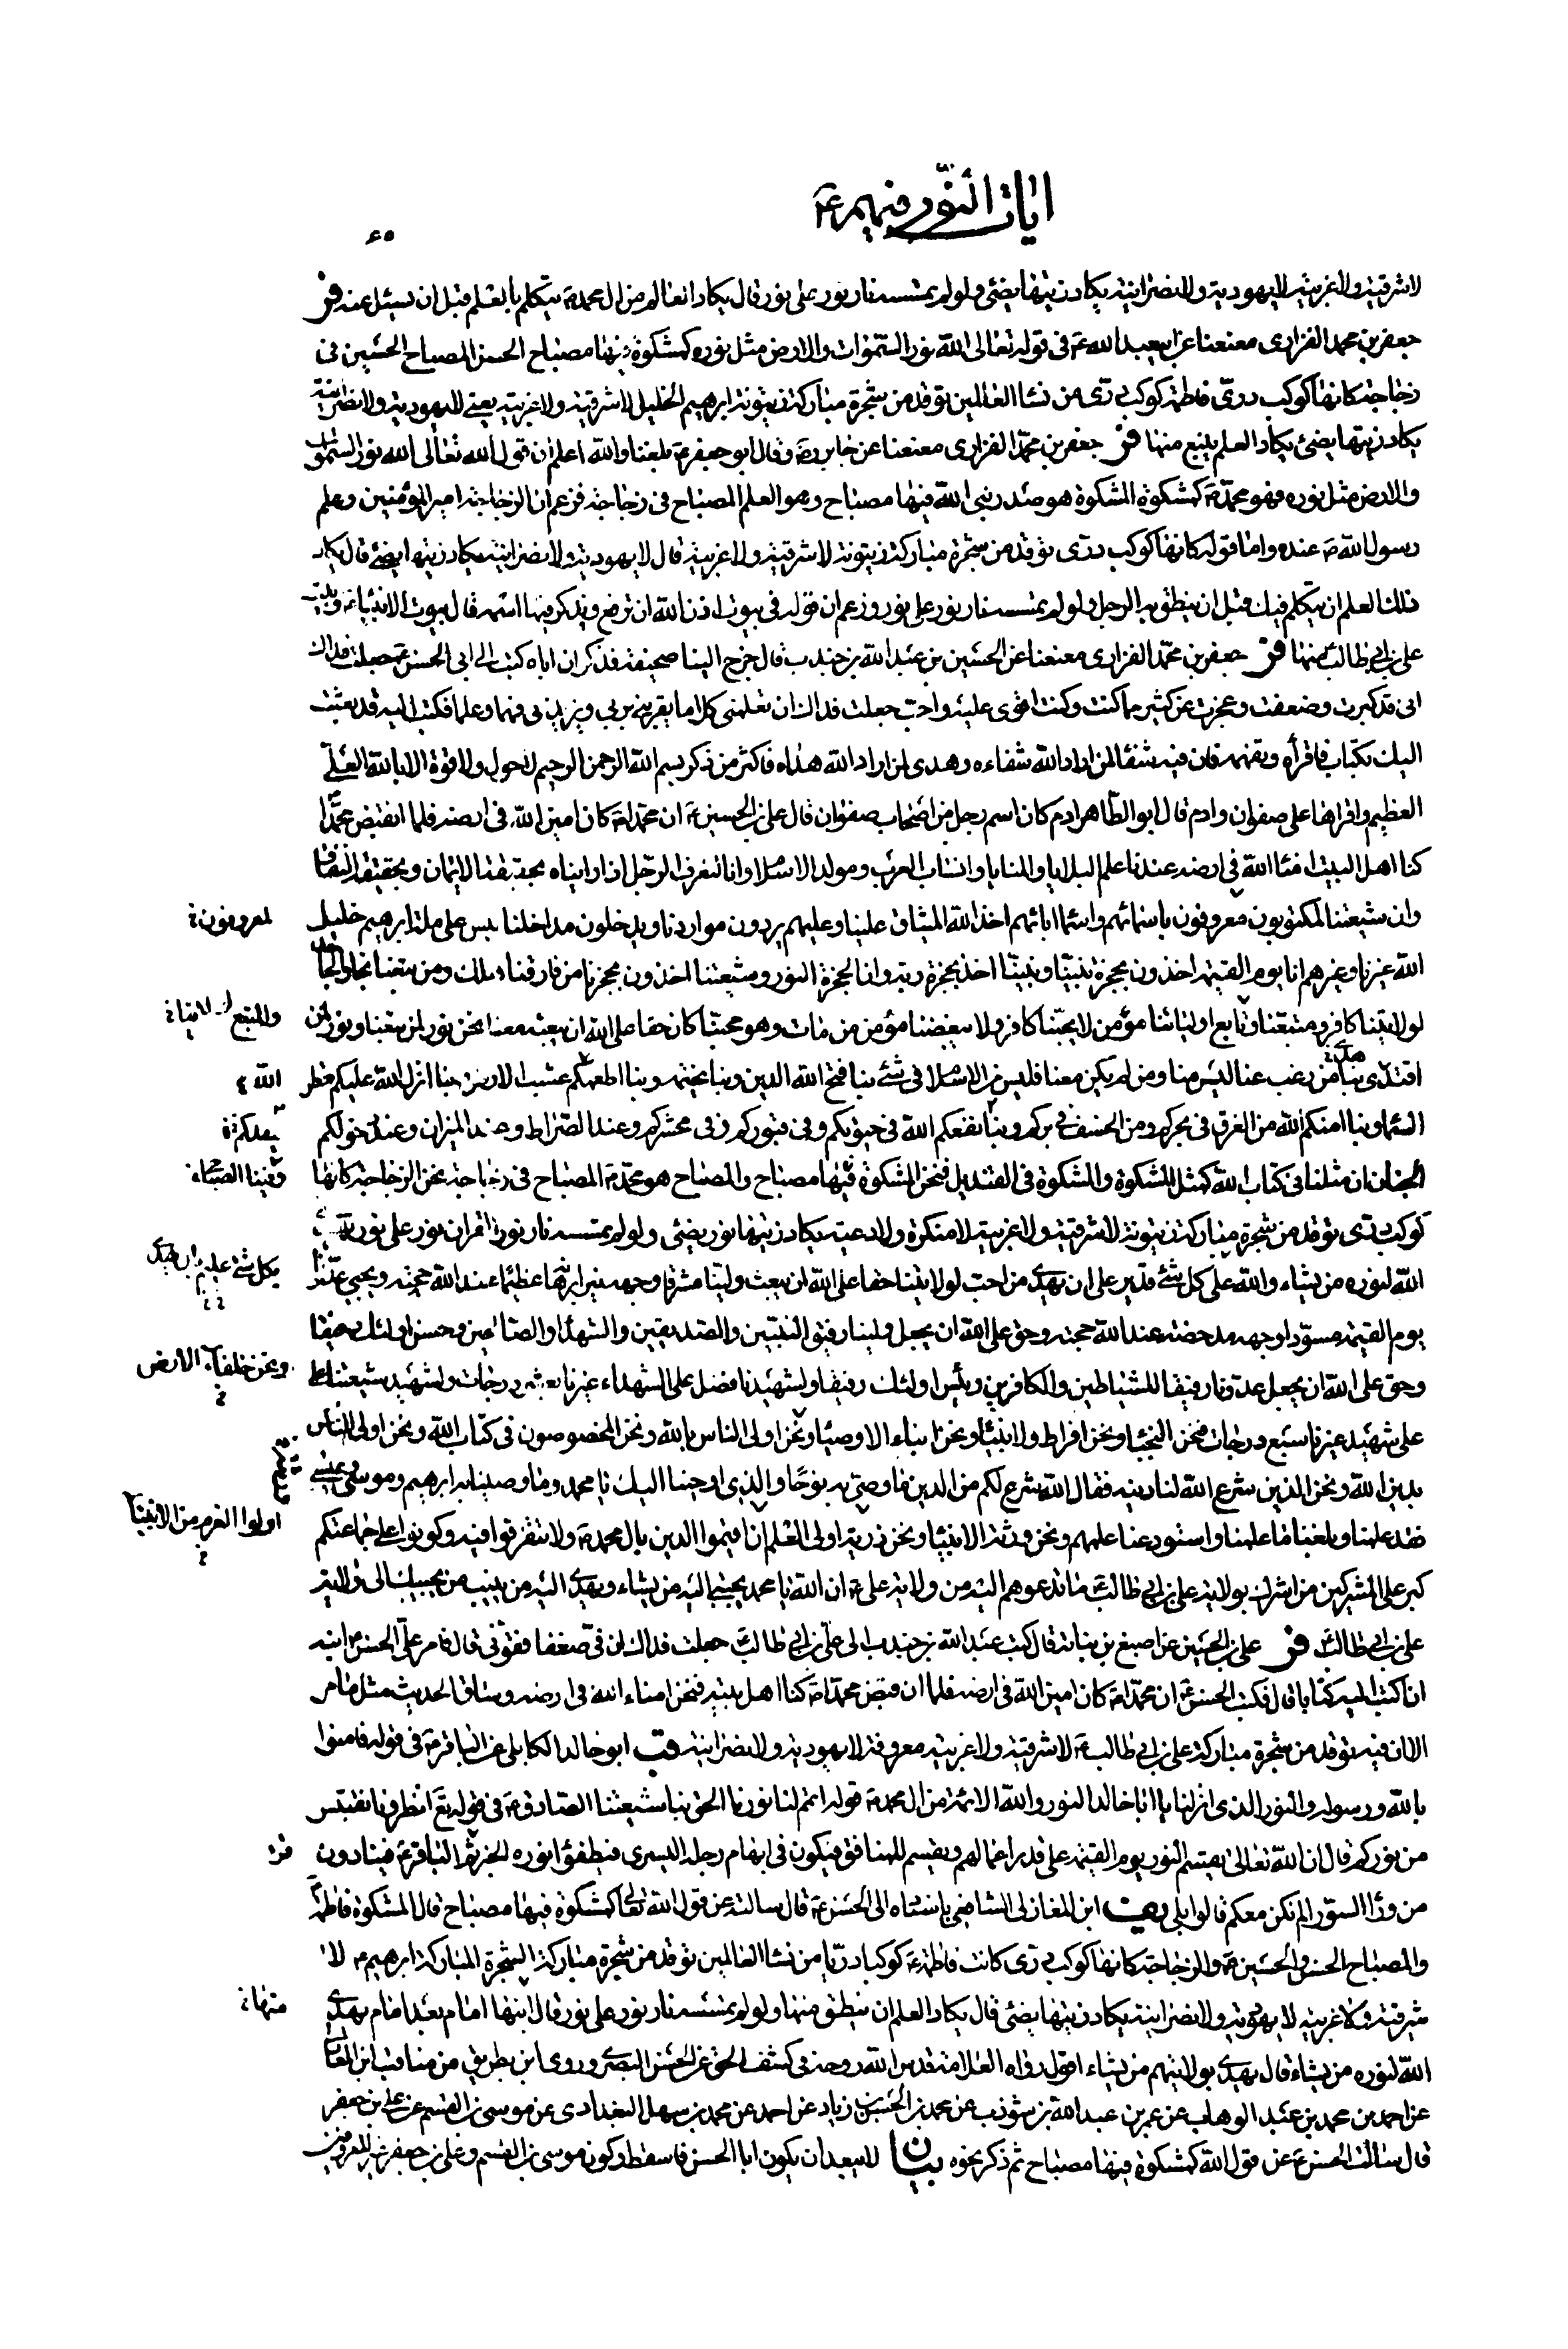 ايات النور فيهم ع
٦٥
لا شرقية ولا غربية لا يهودية ولا نصرانية يكاد زيتها يضئ ولو لم تمسسه نار نور على نور قال يكاد العالم من ال محمد ص يتكلم بالعلم قبل ان يسئل عنه فر
جعفر بن محمد الفزارى معنعنا عن ابيعبد الله ع فى قوله تعالى الله نور السموات والارض مثل نوره كمشكوة فيها مصباح الحسن المصباح الحسين فى
زجاجة كانها كوكب درى فاطمة كوكب درى من نساء العالمين توقد من شجرة مباركة زيتونة ابرهيم الخليل لا شرقية ولا غربية يعنى لا يهودية ولا نصرانية
يكاد زيتها يضئ يكاد العلم ينبع منها فر جعفر بن محمد الفزارى معنعنا عن جابر رض قال ابو جعفر ع بلغنا والله اعلم ان قول الله تعالى الله نور السموات
والارض مثل نوره فهو محمد ص كمشكوة المشكوة هو صدر نبى الله فيها مصباح وهو العلم المصباح فى زجاجة فزعم ان الزجاجة امير المؤمنين وعلم
رسول الله ص عنده واما قوله كانها كوكب درى توقد من شجرة مباركة زيتونة لا شرقية ولا غربية قال لا يهودية ولا نصرانية يكاد زيتها يضئ قال يكاد
ذلك العلم ان يتكلم فيك قبل ان ينطق به الرجل ولو لم تمسسه نار نور على نور وزعم ان قوله فى بيوت اذن الله ان ترفع ويذكر فيها اسمه قال بيوت الانبياء ع وبيت
على بن ابى طالب منها فر جعفر بن محمد الفزارى معنعنا عن الحسين بن عبد الله بن جندب قال خرج الينا صحيفة فذكر ان اباه كتب الى ابى الحسن ع جعلت فداك
انى قد كبرت وضعفت وعجزت عن كثير مما كنت وكنت اقوى عليه واحب جعلت فداك ان تعلمنى كلاما يقربنى بربى ويزيدنى فهما وعلما فكتب اليه قد بعثت
اليك بكتاب فاقرأه وتفهمه فان فيه شفاء لمن اراد الله شفاءه وهدى لمن اراد الله هداه فاكثر من ذكر بسم الله الرحمن الرحيم لا حول ولا قوة الا بالله العلى
العظيم واقراها على صفوان وادم قال ابو الطاهر ادم كان اسم رجل من اصحاب صفوان قال على بن الحسين ع ان محمدا ص كان امين الله فى ارضه فلما انقبض محمدا
كنا اهل البيت امناء الله فى ارضه عندنا علم البلايا والمنايا وانساب العرب ومولد الاسلام وانا لنعرف الرجل اذا رايناه بحقيقة الايمان وبحقيقة النفاق
وان شيعتنا لمكتوبون معروفون باسمائهم واسماء ابائهم اخذ الله الميثاق علينا وعليهم يردون مواردنا ويدخلون مداخلنا ليس على ملة ابرهيم خليل
لمعروفون ﺥ
الله غيرنا وغيرهم انا يوم القيمة اخذون بحجزة نبينا ونبينا اخذ بحجزة ربه وان الحجزة النور وشيعتنا اخذون بحجزنا من فارقنا هلك ومن تبعنا نجا والجاحد
لولايتنا كافر ومتبعنا وتابع اوليائنا مؤمن لا يحبنا كافر ولا يبغضنا مؤمن من مات وهو محبنا كان حقا على الله ان يبعثه معنا نحن نور لمن تبعنا ونور لمن
والمتبع لولايتنا
اقتدى بنا من رغب عنا ليس منا ومن لم يكن معنا فليس من الاسلام فى شئ بنا فتح الله الدين وبنا يختمه وبنا اطعمكم عشب الارض وبنا انزل الله عليكم قطر
هدى
الله
السماء وبنا امنكم الله من الغرق فى بحركم ومن الخسف فى بركم وبنا نفعكم الله فى حيوتكم وفى قبوركم وفى محشركم وعند الصراط وعند الميزان وعند دخولكم
الجنان ان مثلنا فى كتاب الله كمثل المشكوة والمشكوة فى القنديل فنحن المشكوة فيها مصباح والمصباح هو محمد ص المصباح فى زجاجة نحن الزجاجة كانها
وفينا المصباح
كوكب درى توقد من شجرة مباركة زيتونة لا شرقية ولا غربية لا منكرة ولا دعية يكاد زيتها نور يضئى ولو لم تمسسه نار نور القران نور على نور يهدى
الله لنوره من يشاء والله على كل شئ قدير على ان يهدى من احب لولايتنا حقا على الله ان يبعث ولينا مشرقا وجهه نيرا برهانه عظيما عند الله حجته ويجيئ عدونا
بكل شئ عليم ان يهدى
يوم القيمة مسودا وجهه مدحضة عند الله حجته وحق على الله ان يجعل ولينا رفيق النبيين والصديقين والشهداء والصالحين وحسن اولئك رفيقا
وحق على الله ان يجعل عدونا رفيقا للشياطين والكافرين وبئس اولئك رفيقا ولشهيدنا فضل على الشهداء غيرنا بعشر درجات ولشهيد شيعتنا
ونحن خلفاء الارض
على شهيد غيرنا سبع درجات فنحن النجباء ونحن افراط الانبياء ونحن ابناء الاوصياء ونحن اولى الناس بالله ونحن المخصوصون فى كتاب الله ونحن اولى الناس
بدين الله ونحن الذين شرع الله لنا دينه فقال الله شرع لكم من الدين ما وصى به نوحا والذى اوحينا اليك يا محمد وما وصينا به ابرهيم وموسى وعيسى
فقد علمنا وبلغنا ما علمنا واستودعنا علمهم ونحن ورثة الانبياء ونحن ذرية اولى العلم ان اقيموا الدين بال محمد ص ولا تتفرقوا فيه وكونوا على جماعتكم
اولوا العزم من الانبياء
كبر على المشركين من اشرك بولاية على بن ابى طالب ع ما تدعوهم اليه من ولاية على ع ان الله يا محمد يجتبى اليه من يشاء ويهدى اليه من ينيب من يجيبك الى ولاية
على بن ابى طالب ع فر على بن الحسين عن اصبغ بن نباتة قال كتب عبد الله بن جندب الى على بن ابى طالب ع جعلت فداك ان فى ضعفا فقونى قال فامر على الحسن ع ابنه
ان اكتب اليه كتابا قال فكتب الحسن ع ان محمدا ص كان امين الله فى ارضه فلما ان قبض محمدا ص كنا اهل بيته فنحن امناء الله فى ارضه وساق الحديث مثل ما مر
الا ان فيه توقد من شجرة مباركة على بن ابى طالب ع لا شرقية ولا غربية معروفة لا يهودية ولا نصرانية قب ابو خالد الكابلى عن الباقر ع فى قوله فامنوا
بالله ورسوله والنور الذى انزلنا يا ابا خالد النور والله الائمة من ال محمد ص قوله اتمم لنا نورنا الحق بنا شيعتنا الصادق ع فى قوله تع انظرونا نقتبس
من نوركم قال ان الله تعالى يقسم النور يوم القيمة على قدر اعمالهم ويقسم للمنافق فيكون فى ابهام رجله اليسرى فيطفؤ نوره الخبر ثم الباقر ع فينادون
من وراء السور الم نكن معكم قالوا بلى يف ابن المغازلى الشافعى باسناده الى الحسن ع قال سالته عن قول الله تعالى كمشكوة فيها مصباح قال المشكوة فاطمة
والمصباح الحسن والحسين ع والزجاجة كانها كوكب درى كانت فاطمة ع كوكبا دريا من نساء العالمين توقد من شجرة مباركة الشجرة المباركة ابرهيم ع لا
شرقية ولا غربية لا يهودية ولا نصرانية يكاد زيتها يضئى قال يكاد العلم ان ينطق منها ولو لم تمسسه نار نور على نور قال ابنها امام بعد امام يهدى
منها
الله لنوره من يشاء قال يهدى بولايتهم من يشاء اقول رواه العلامة قدس الله روحه فى كشف الحق عن الحسن البصرى وروى ابن بطريق من مناقب ابن المغازلى
عن احمد بن محمد بن عبد الوهاب عن عمر بن عبد الله بن شوذب عن محمد بن الحسين بن زياد عن احمد عن محمد بن سهل البغدادى عن موسى بن القسم عن على بن جعفر
قال سالت الحسن ع عن قول الله كمشكوة فيها مصباح ثم ذكر نحوه بيان لا يبعد ان يكون ابا الحسن فاسقط وكون موسى بن القسم وعلى بن جعفر غير المعروفين